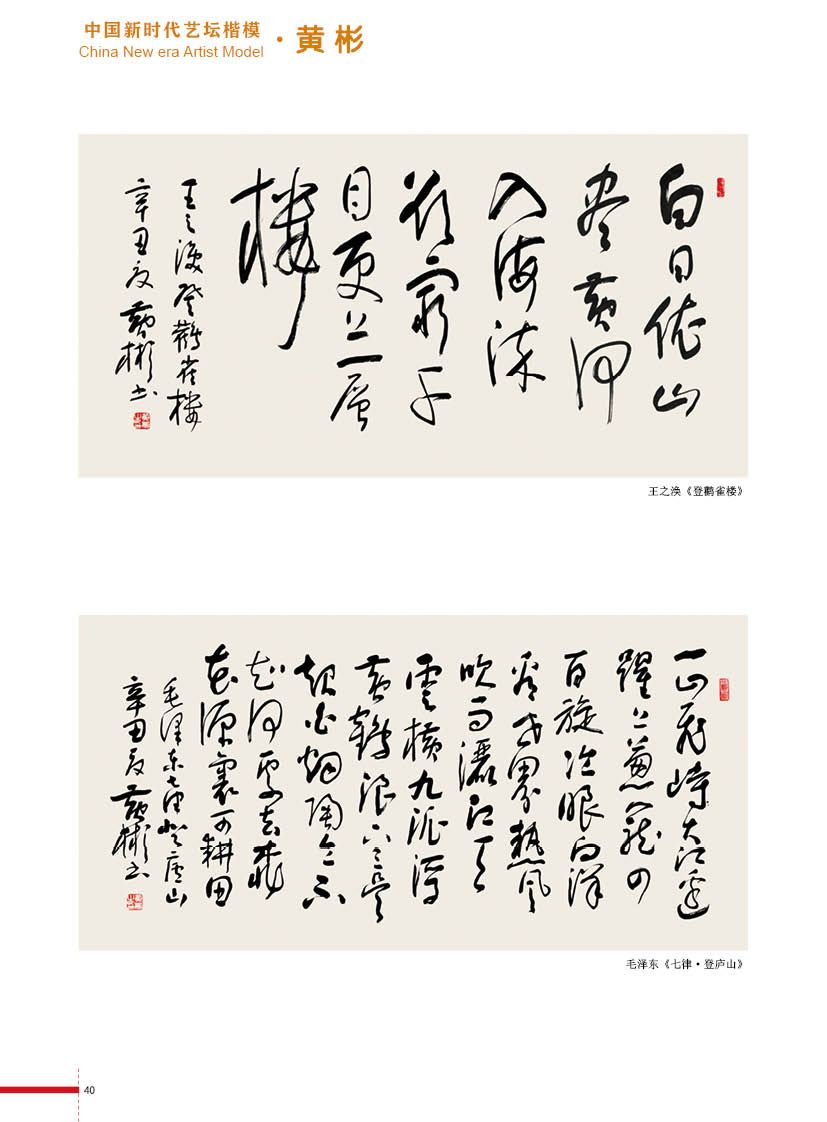 中国新时代艺坛楷模
China New era Artist Model
·黄彬
白日依山
尽黄河
入海流
欲穷千
目更上一层
楼
王之涣登鹳雀楼
辛丑夏黄彬书
王之涣《登鹳雀楼》
一山飛峙大江边
躍上葱茏四
百旋冷眼向洋
看世界熱風
吹雨灑江天
雲横九派浮
黄鶴浪下三吴
起白烟陶令不
知何处去桃
花源裏可耕田
毛泽东七律登庐山
辛丑夏黄彬书
毛泽东《七律·登庐山》
40